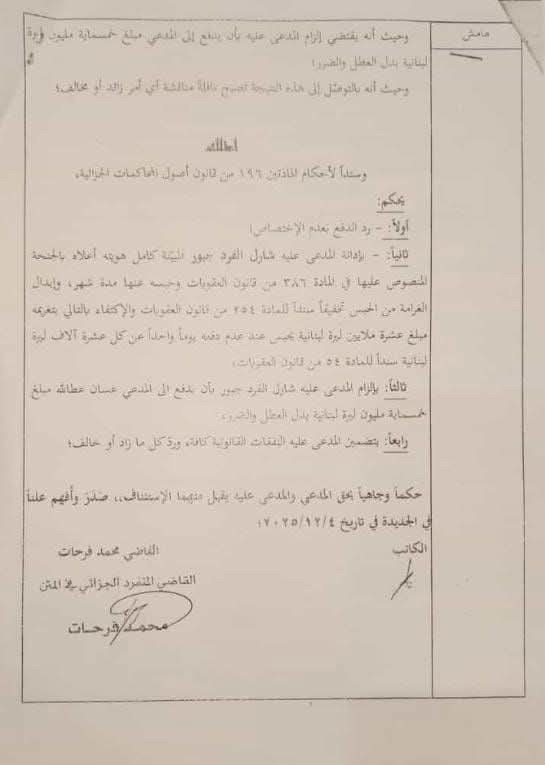 هامش
وحيث أنه يقتضي إلزام المدعى عليه بأن يدفع إلى المدعي مبلغ خمسماية مليون ليرة
لبنانية بدل العطل والضرر؛
وحيث أنه بالتوصّل إلى هذه النتيجة تصبح نافلةً مناقشة أي أمر زائد أو مخالف؛
لذلك
وسنداً لأحكام المادتين ١٩٦ من قانون أصول المحاكمات الجزائية،
يحكم:
أولاً: - رد الدفع بعدم الإختصاص؛
ثانياً: - بإدانة المدعى عليه شارل الفرد جبور المبيّنة كامل هويته أعلاه بالجنحة
المنصوص عليها في المادة ٣٨٦ من قانون العقوبات وحبسه عنها مدة شهر، وإبدال
الغرامة من الحبس تخفيفاً سنداً للمادة ٢٥٤ من قانون العقوبات والإكتفاء بالتالي بتغريمه
مبلغ عشرة ملايين ليرة لبنانية يحبس عند عدم دفعه يوماً واحداً عن كل عشرة آلاف ليرة
لبنانية سنداً للمادة ٥٤ من قانون العقوبات؛
ثالثاً: بإلزام المدعى عليه شارل الفرد جبور بأن يدفع الى المدعي غسان عطالله مبلغ
خمسماية مليون ليرة لبنانية بدل العطل والضرر،
رابعاً: بتضمين المدعى عليه النفقات القانونية كافة، وردّ كل ما زاد أو خالف؛
حكماً وجاهياً بحق المدعي والمدعى عليه يقبل الإستئناف،، صَدَرَ وأفهم علناً
في الجديدة في تاريخ ٢٠٢٥/١٢/٤؛
الكاتب
القاضي محمد فرحات
القاضي المنفرد الجزائي في المتن
محمد فرحات